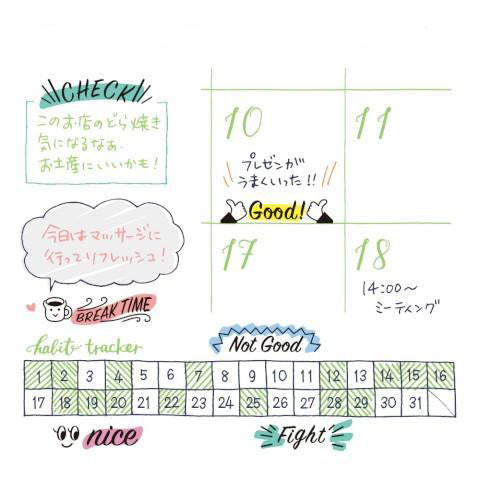 CHECK!
このお店のどら焼き
気になるなぁ.
お土産にいいかも!
10
11
プレゼンが
うまくいった!!
Good!
今日はマッサージに
行ってリフレッシュ!
17
18
14:00〜
ミーティング
BREAK TIME
habit tracker
Not Good
1 2 3 4 5 6 7 8 9 10 11 12 13 14 15 16
17 18 19 20 21 22 23 24 25 26 27 28 29 30 31
nice
Fight